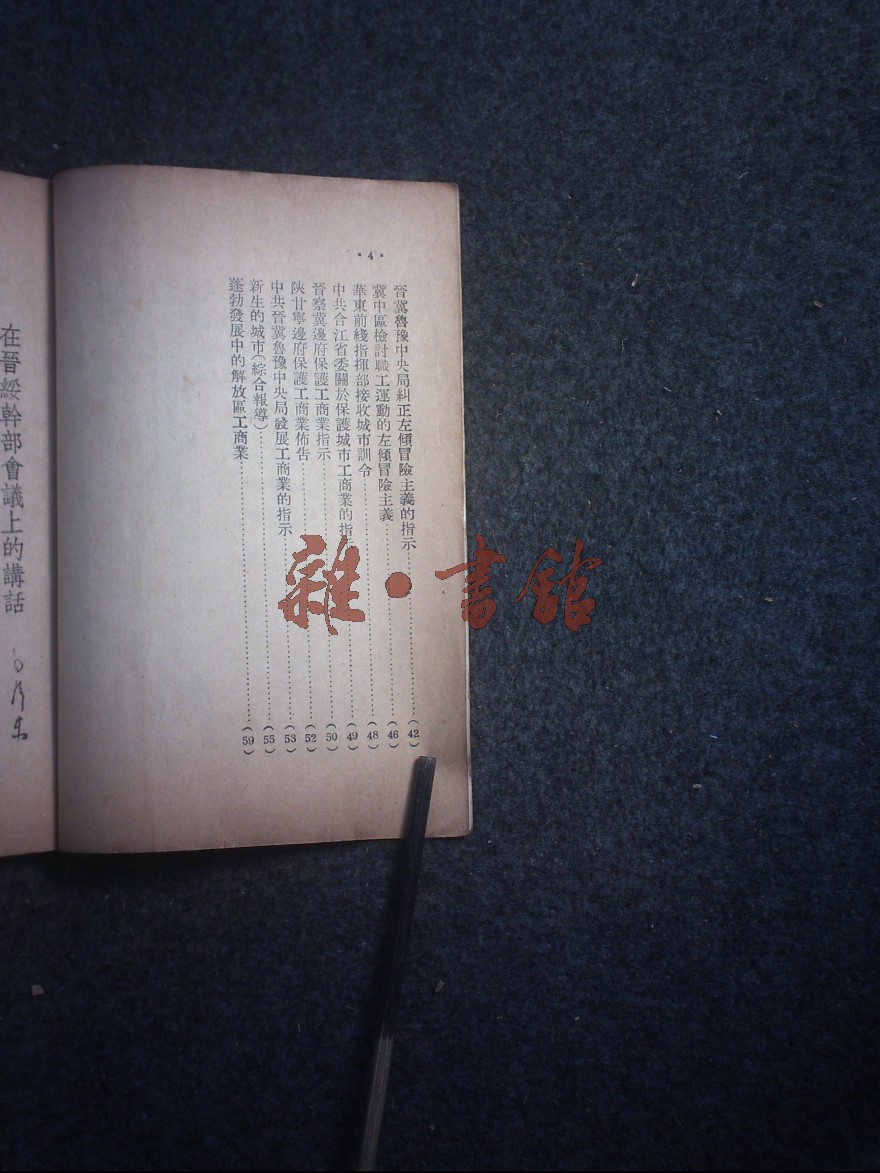 ·4·
晉冀魯豫中央局糾正左傾冒險主義的指示……(42)
冀中區檢討職工運動的左傾冒險主義……(46)
華東前綫指揮部接收城市訓令……(48)
中共合江省委關於保護城市工商業的指……(49)
晉察冀邊府保護工商業指示……(50)
陝甘寧邊府保護工商業佈告……(52)
中共晉冀魯豫中央局發展工商業的指示……(53)
新生的城市(綜合報導)……(55)
蓬勃發展中的解放區工商業……(59)
在晉綏幹部會議上的講話
雜·書館